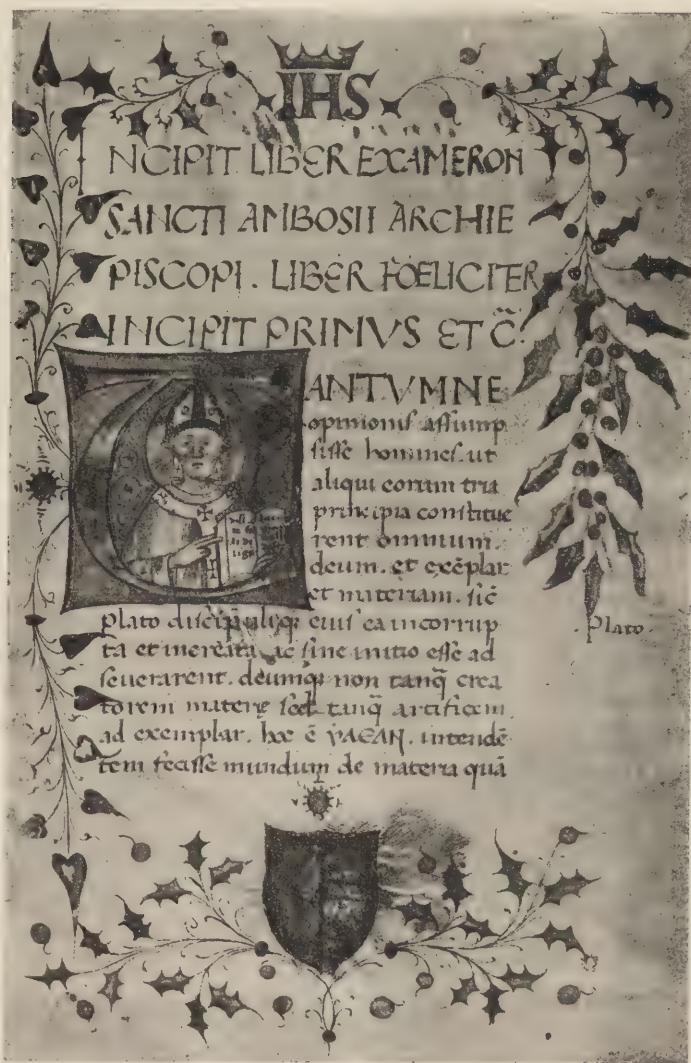 IHS
NCIPIT LIBER EXAMERON
SANCTI AMBOSII ARCHIE
PISCOPI . LIBER FOELICITER
INCIPIT PRIMVS ET C̃.
TANTVMNE
opinionis assump
sisse homines. ut
aliqui eorum tria
principia constitue
rent omnium.
deum. et exẽplar
et materiam. sic̃
plato discip̃uliq; eius ea incorrup
ta et increata. ac sine initio esse ad
seuerarent. deumq; non tanq̃ crea
torem materię sed tanq̃ artificem.
ad exemplar. hoc ẽ YΛEAN. intendẽ
tem fecisse mundum de materia quã
Plato.